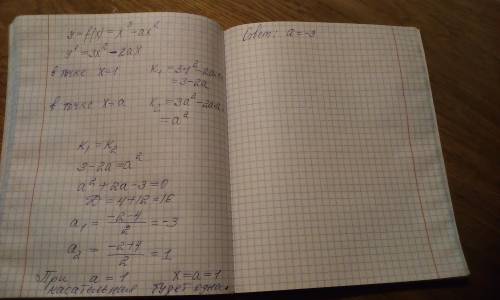 y = f(x) = x³ - ax²
y' = 3x² - 2ax
в точке x=1 k₁ = 3·1² - 2a·1 =
= 3-2a
в точке x=a k₂ = 3a² - 2a·a
= a²
k₁ = k₂
3-2a = a²
a² + 2a - 3 = 0
D = 4+12 = 16
a₁ = (-2-4)/2 = -3
a₂ = (-2+4)/2 = 1
При a = 1 x = a = 1
касательная будет одна
Ответ: a = -3